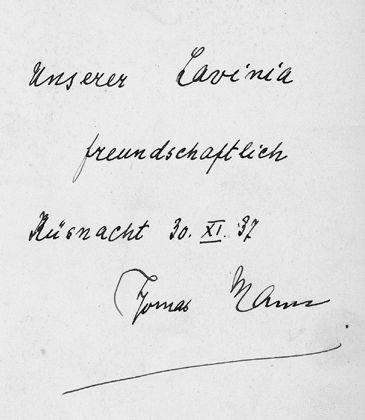 Unserer Lavinia
freundschaftlich
Küsnacht 30. XI. 37
Tomas Mann